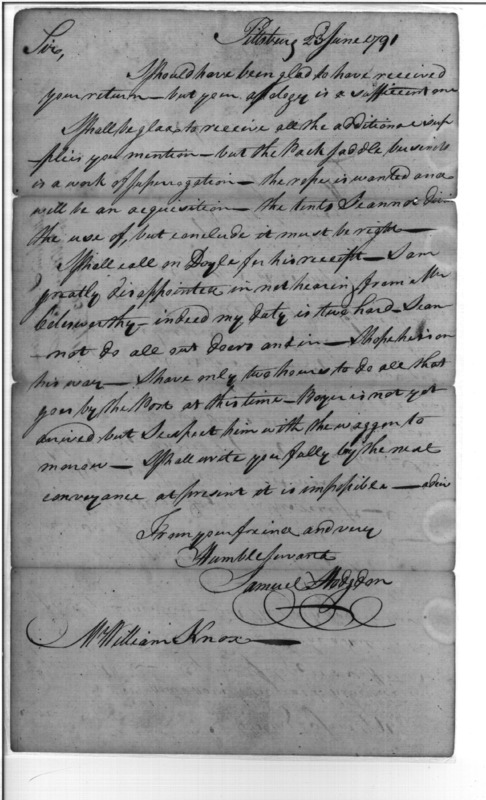 Pittsburg 23 June 1791
Sir,
I should have been glad to have received
your return — but your apology is a sufficient one
I shall be glad to receive all the additional sup-
plies you mention — but the Pack saddle business
is a work of superogation — the rope is wanted and
will be an acquisition — the tents I cannot divi
the use of, but conclude it must be right —
I shall call on Doyle for his receipt — I am
greatly disappointed in not hearing from Mr
indeed my duty is two hard — I can
not do all out doors and in — I hope he is on
his way — I have only two hours to do all that
goes by the Post at this time — is not yet
arived but I expect him with the waggon to
morrow — I shall write you fully by the next
conveyance at present it is impossible — adieu
From your friend and very
Humble servant
Samuel Hodgdon
Mr William Knox